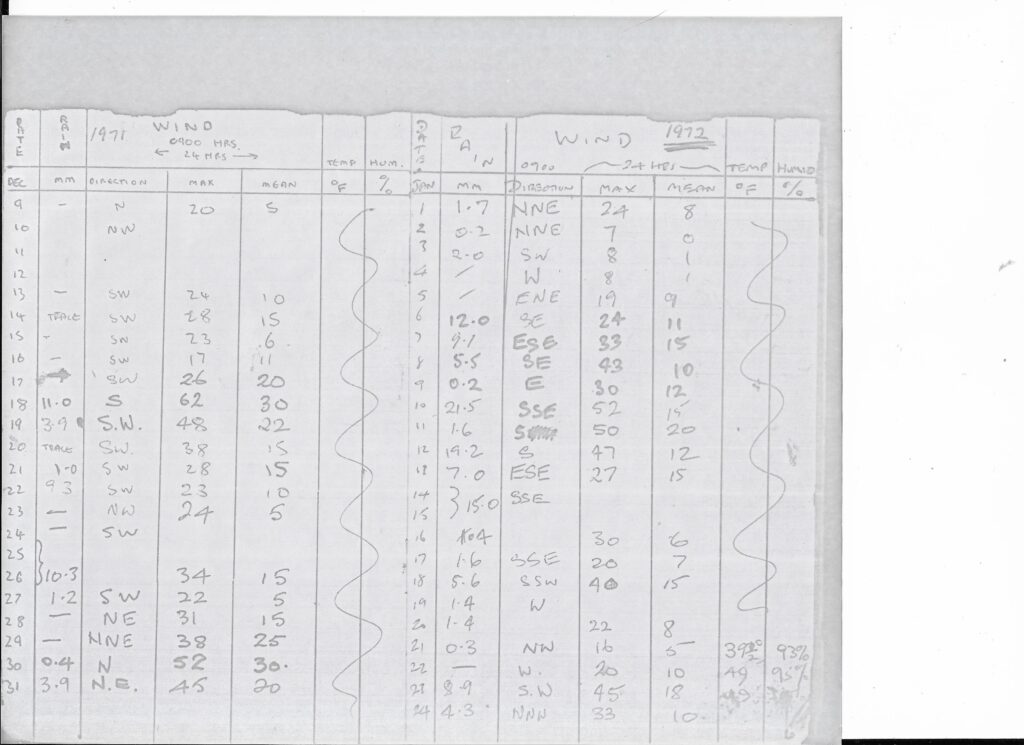 DATE RAIN 1971 WIND
0900 HRS.
← 24 HRS → TEMP HUM.
DEC mm DIRECTION MAX MEAN °F %
9 — N 20 5
10 NW
11
12
13 — SW 24 10
14 TRACE SW 28 15
15 - SW 23 6
16 — SW 17 11
17 SW 26 20
18 11.0 S 62 30
19 3.9 S.W. 48 22
20 TRACE SW. 38 15
21 1.0 SW 28 15
22 9.3 SW 23 10
23 — NW 24 5
24 — SW
25
26 } 10.3 34 15
27 1.2 SW 22 5
28 — NE 31 15
29 — NNE 38 25
30 0.4 N 52 30.
31 3.9 N.E. 45 20
DATE RAIN WIND 1972
0900 24 HRS TEMP HUMID
JAN MM DIRECTION MAX MEAN °F %
1 1.7 NNE 24 8
2 0.2 NNE 7 0
3 2.0 SW 8 1
4 / W 8 1
5 / ENE 19 9
6 12.0 SE 24 11
7 9.1 ESE 33 15
8 5.5 SE 43 10
9 0.2 E 30 12
10 21.5 SSE 52 15
11 1.6 S 50 20
12 19.2 S 47 12
13 7.0 ESE 27 15
14 SSE
15 } 15.0
16 30 6
17 1.6 SSE 20 7
18 5.6 SSW 40 15
19 1.4 W
20 1.4 22 8
21 0.3 NW 16 5 93%
22 — W. 20 10 49 95%
23 8.9 S.W 45 18
24 4.3 NNW 33 10.